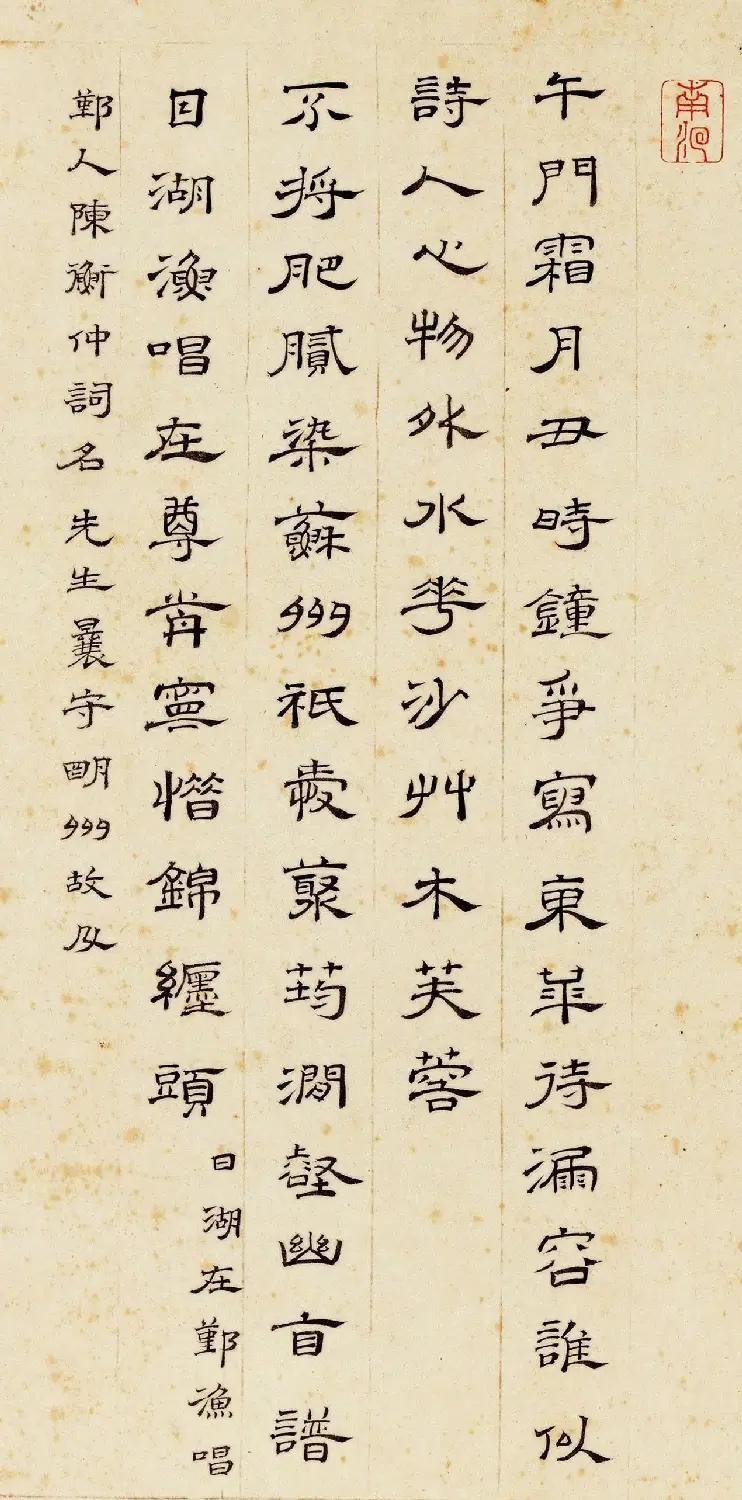 午門霜月丑時鐘爭寫東華待漏容誰似
詩人心物外水華沙艸木芙蓉
不將肥膩染蘇州祇愛叢筠澗壑幽自譜
日湖漁唱在尊前寧惜錦纏頭
日湖在鄞漁唱
鄞人陳衡仲詞名先生曩守明州故及